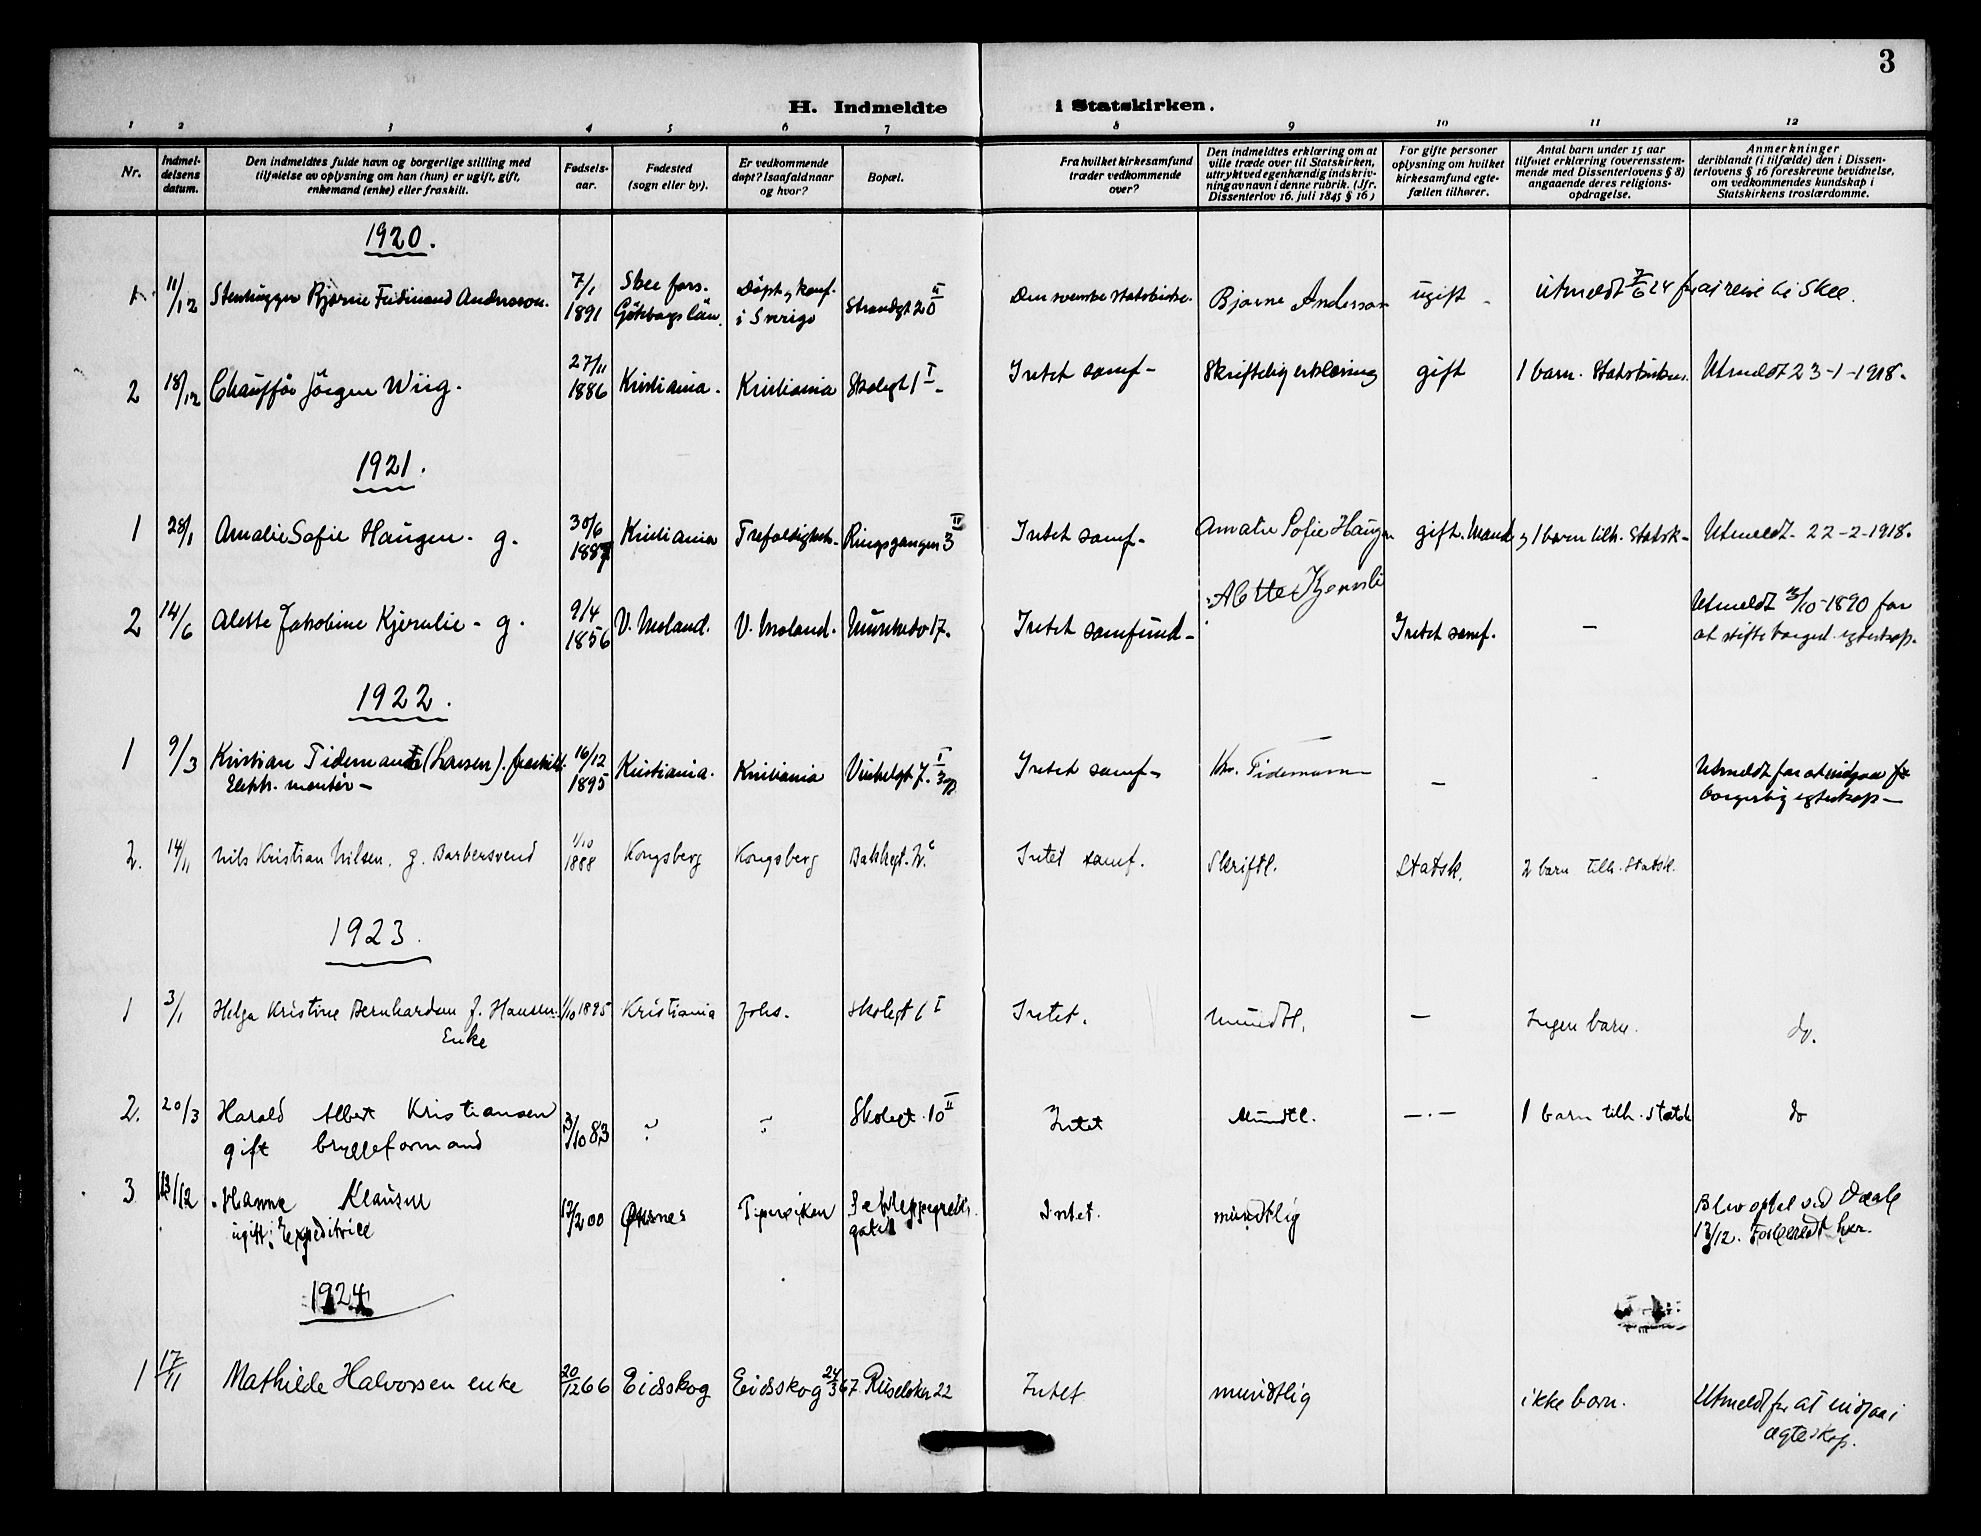 3
H. Indmeldte i Statskirken.
1 2 3 4 5 6 7 8 9 10 11 12
Nr.
Indmel-
delsens
datum.
Den indmeldtes fulde navn og borgerlige stilling med
tilføielse av oplysning om han (hun) er ugift, gift,
enkemand (enke) eller fraskilt.
Fødsels-
aar.
Fødested
(sogn eller by).
Er vedkommende
døpt? Isaafald naar
og hvor?
Bopæl.
Fra hvilket kirkesamfund
træder vedkommende
over?
Den indmeldtes erklæring om at
ville træde over til Statskirken,
uttrykt ved egenhændig indskriv-
ning av navn i denne rubrik. (Jfr.
Dissenterlov 16. juli 1845 § 16)
For gifte personer
oplysning om hvilket
kirkesamfund egte-
fællen tilhører.
Antal barn under 15 aar
tilføiet erklæring (overensstem-
mende med Dissenterlovens § 8)
angaaende deres religions-
opdragelse.
Anmerkninger
deriblandt (i tilfælde) den i Dissen-
terlovens § 16 foreskrevne bevidnelse,
om vedkommendes kundskap i
Statskirkens troslærdomme.
1920.
1. 11/12 Stenhugger Bjarne Ferdinand Andersson. 7/1 1891 Skee fors. Göteborgs län. Døpt og konf. i Sverige Strandgt 20 II Den svenske statskirke. Bjarne Andersson ugift - Utmeldt 7/6 24 for at reise til Skee.
2 18/12 Chauffør Jörgen Wiig. 27/11 1886 Kristiania. Kristiania Skolegt 1 I - Intet samf - Skriftelig erklæring gift 1 barn. Statskirken. Utmeldt 23-1-1918.
1921.
1 28/1 Amalie Sofie Haugen - g. 30/6 1887 Kristiania Trefoldigheds. Ringsgangen 3 II Intet samf. Amalie Sofie Haugen gift. Mand og 1 barn tilh. Statsk - Utmeldt - 22-2-1918.
2 14/6 Alette Jakobine Kjernlie - g. 9/4 1856 V. Moland. V. Moland. Munkedv 17. Intet samfund - Alette Kjernli Intet samf. - Utmeldt 3/10-1890 for
at stifte borgerl. egteskap.
1922.
1 9/3 Kristian Tidemand (Larsen). fraskilt. 16/12 1895 Kristiania. Kristiania Vinkelgt 7. I 3 op. Intet samf - Kr. Tidemann - - Utmeldt for at indgaa
Elektr. montör - borgerlig egteskap -
2. 14/11 Nils Kristian Nilsen. g. Barbersvend 1/10 1888 Kongsberg Kongsberg Intet samf. Skriftl. Statsk. 2 barn tilh. Statsk.
1923.
1 3/1 Helga Kristine Bernhardsen f. Hansen. 1/10 1895 Kristiania Johs. Skolegt 6 I Intet. Mundtl. - Ingen barn. do.
Enke
2. 20/3 Harald Albert Kristiansen 3/10 83 Skolegt. 10 II Intet Mundtl. -.- 1 barn tilh. Statsk do
gift bryggeformand
3 13/12 Hanna Klausen 17/2 00 Intet. mundtlig Blev optat ved
ugift: Expeditrice gaten 13/12. her.
1924
1 17/11 Mathilde Halvorsen enke 20/12 66 Eidsskog Eidsskog 24/3 67 Ruseløkv 22 Intet mundtlig ikke barn. Utmeldt for at indgaa i
ægteskap.